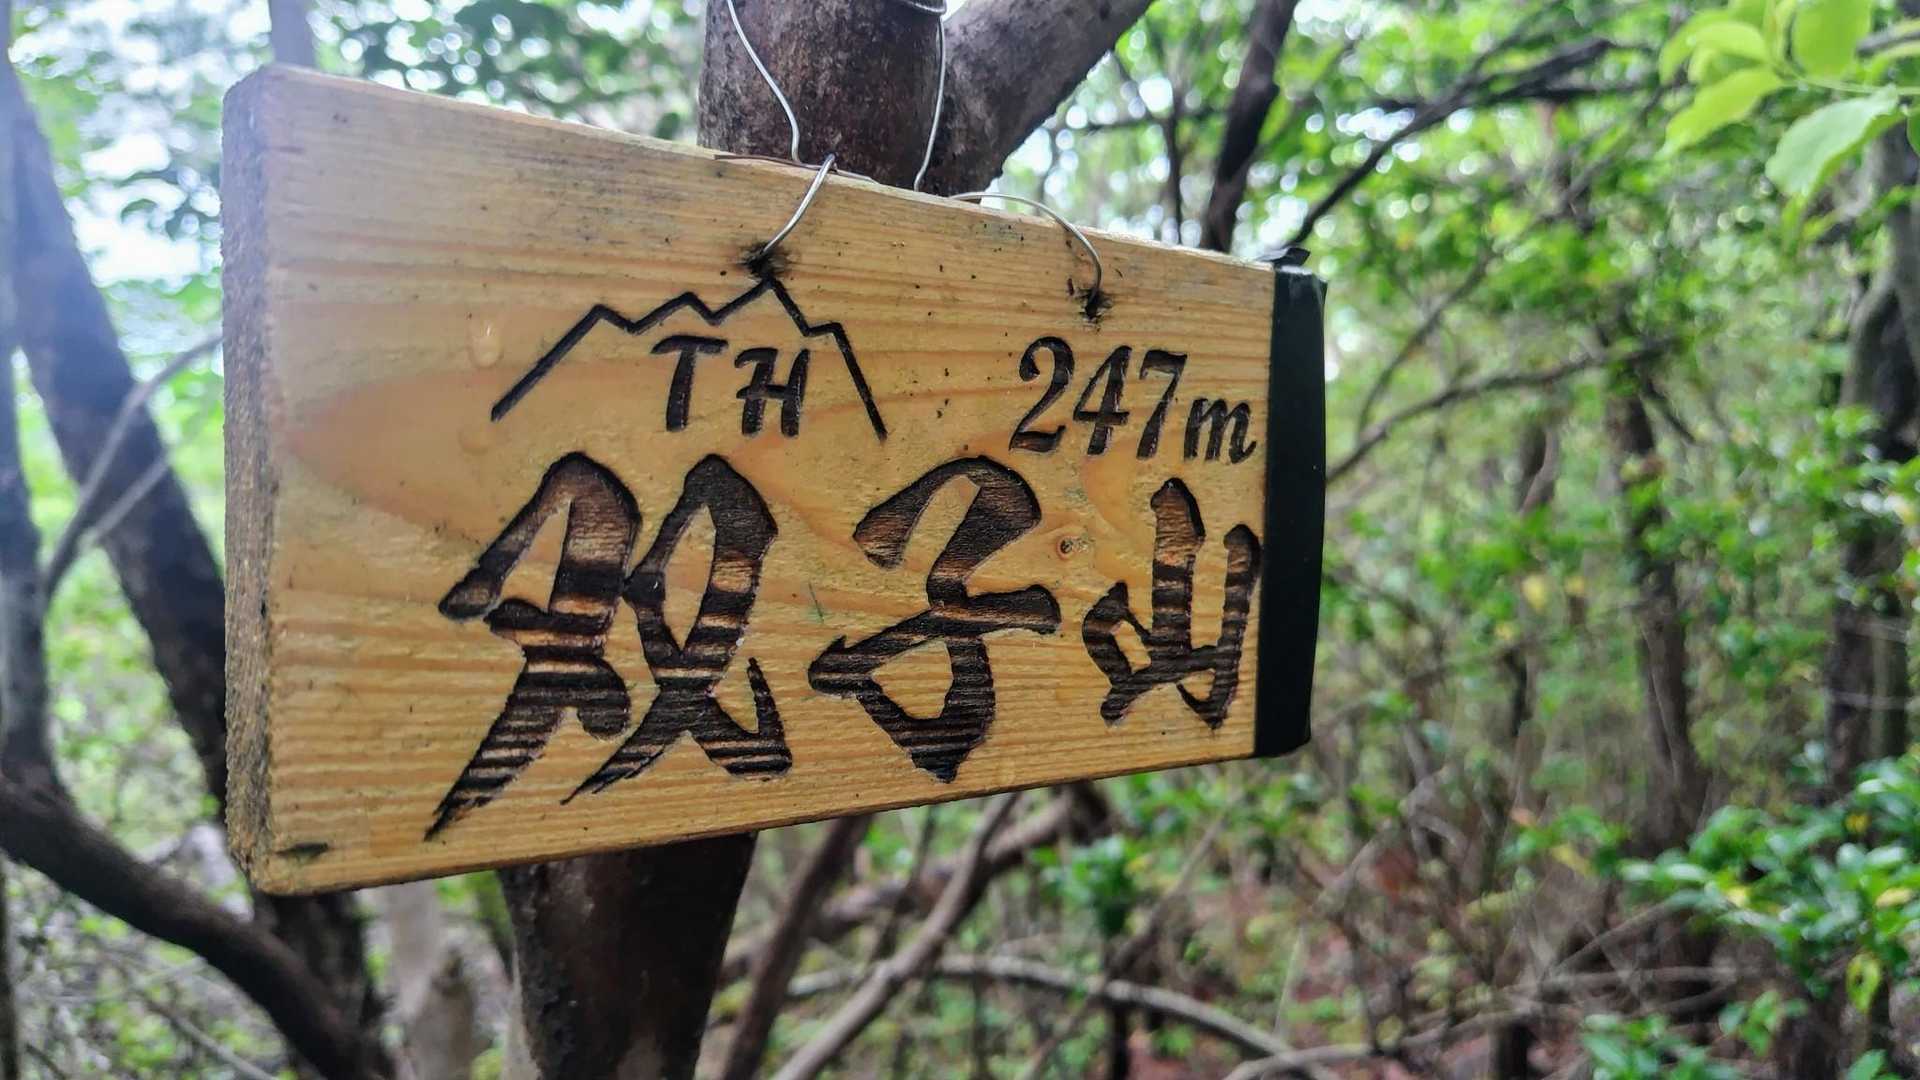 TH 247m
双子山